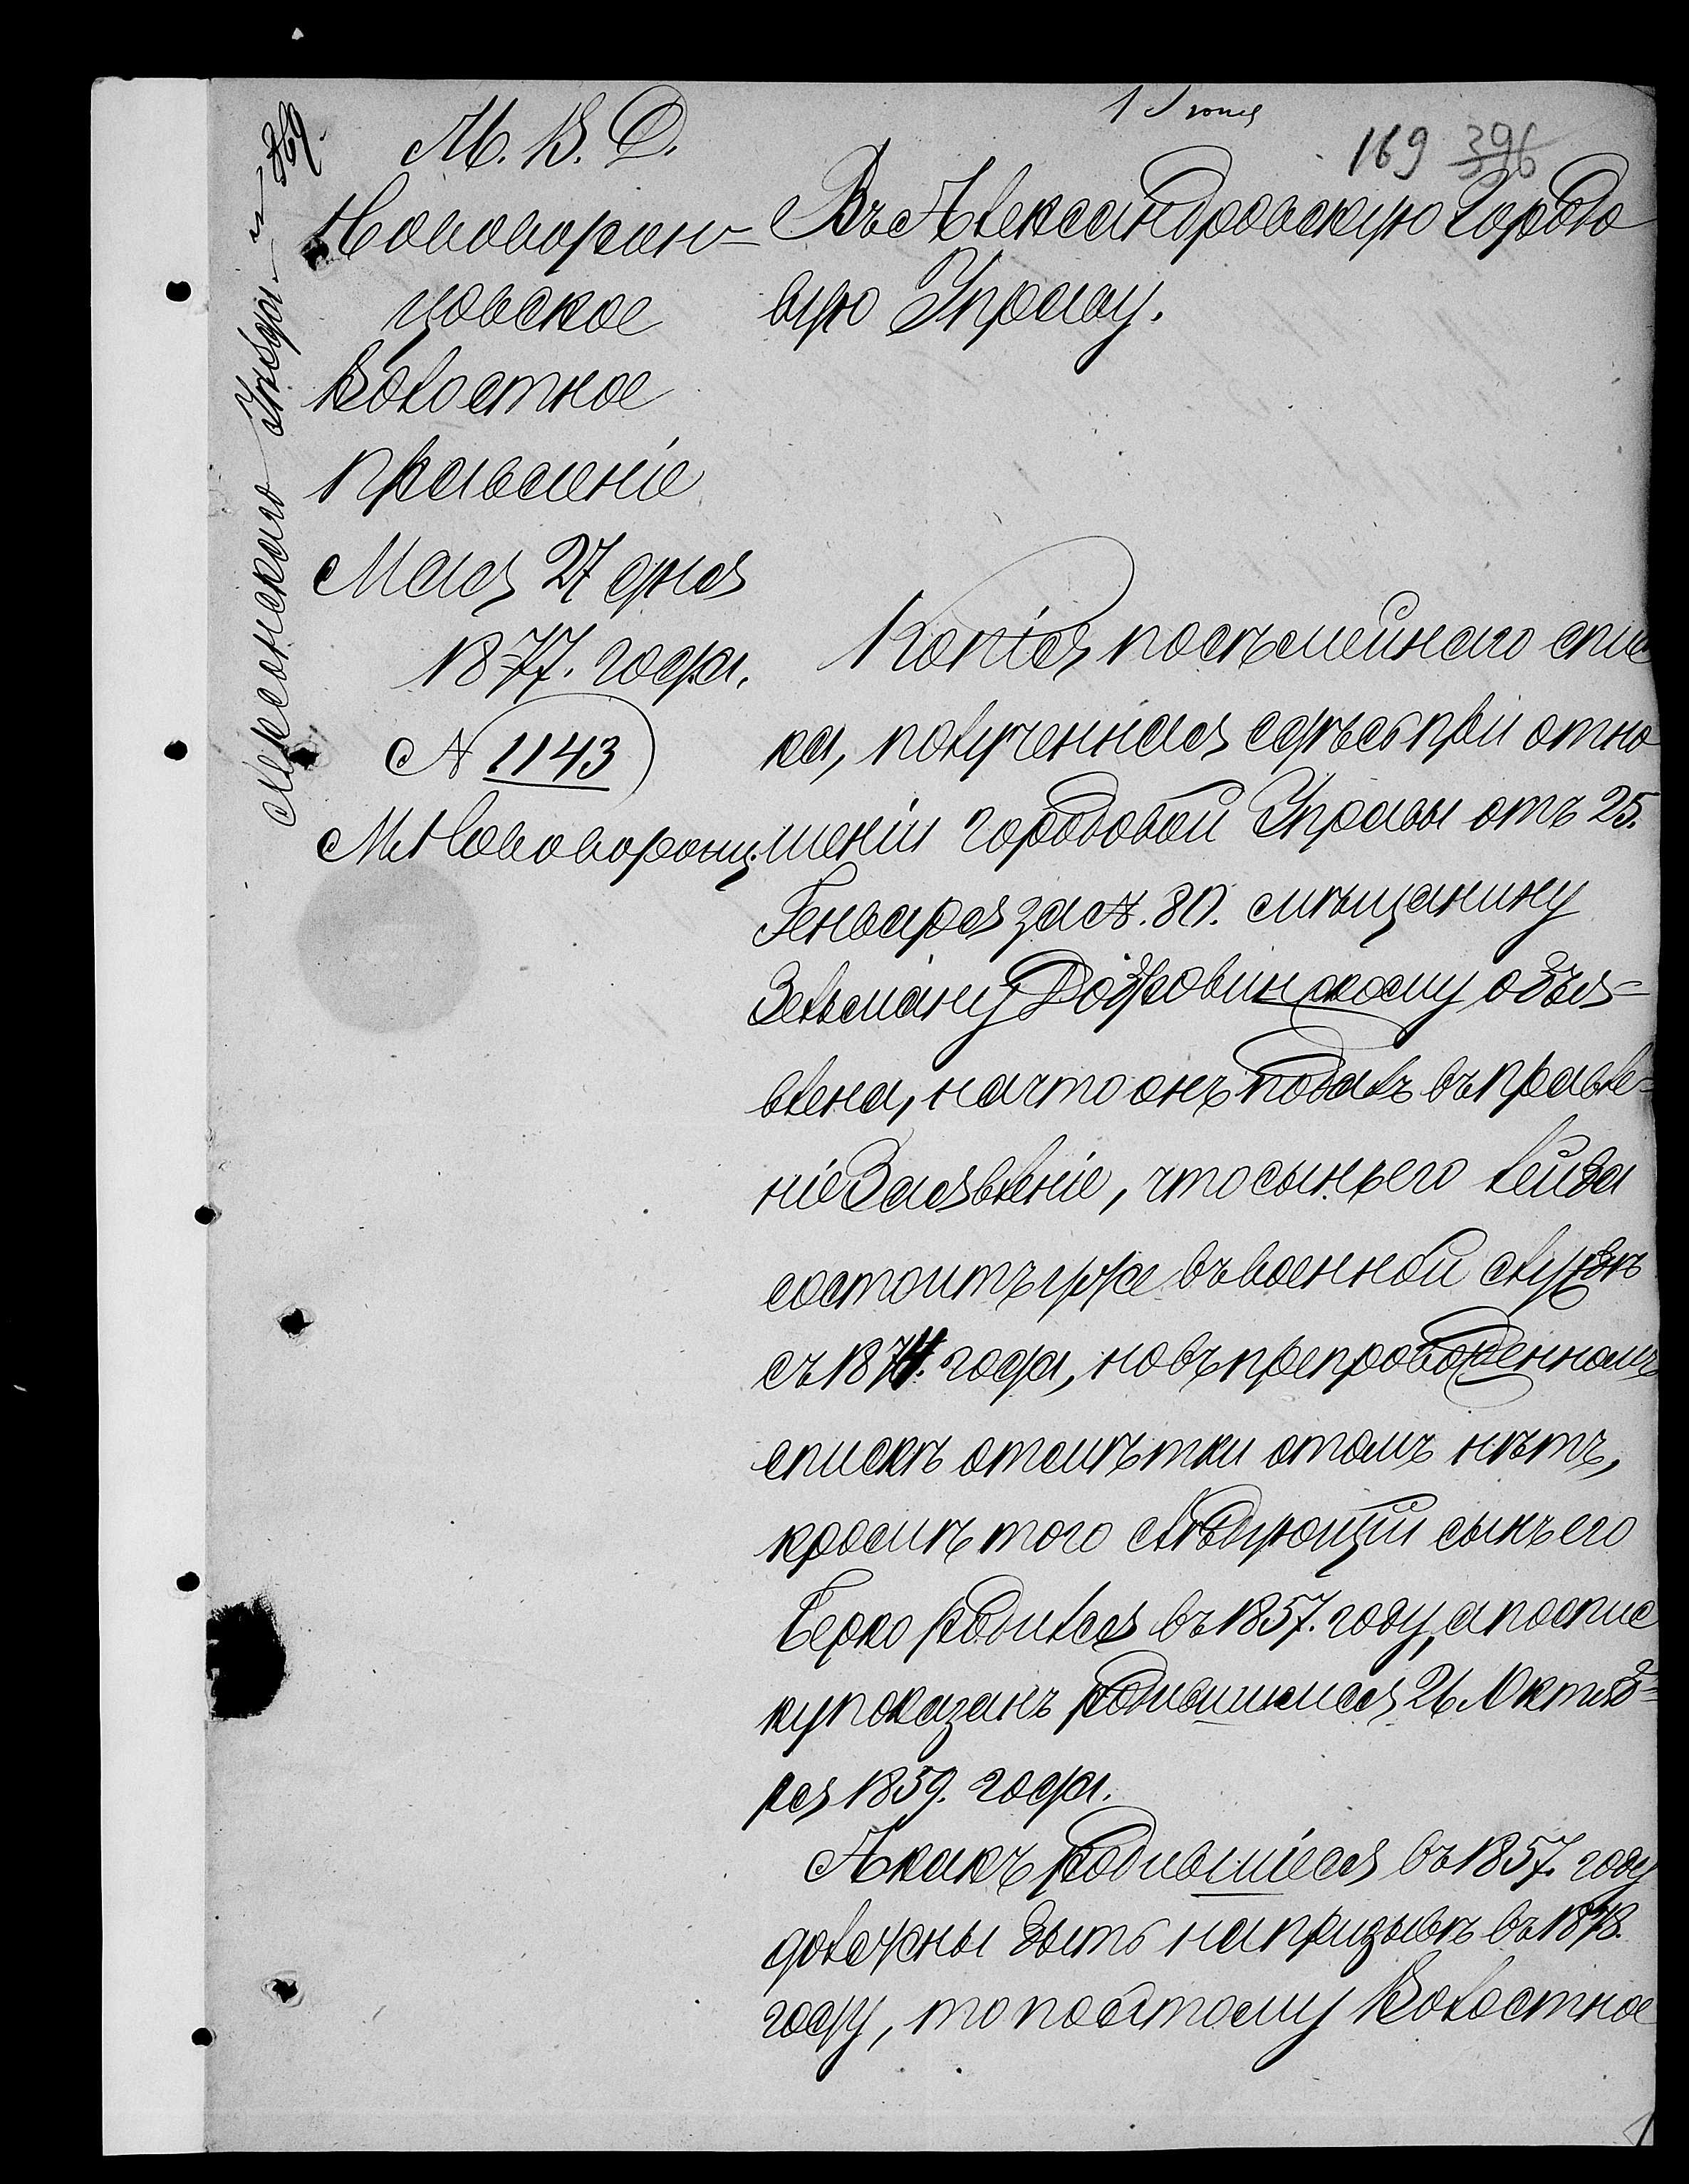 1 Іюня
169 396
М. В. Д.
Нововорон-
цовское
Волостное
Правленіе
Мая 27 дня
1877. года.
№ 1143
М. Нововоронц.
Въ Александровскую Городо
вую Управу.
Копія посѣмейнаго спис
ка, полученная здѣсь при отно
шеніи Городовой Управы отъ 25.
Генваря за №. 80. мѣщанину
Зельману Добровинскому объя-
влена, на что онъ подалъ въ правле-
ніе Заявленіе, что сынъ его Лейба
состоитъ уже въ военной службѣ
съ 1874. года, но въ препровожденномъ
спискѣ отмѣтки о томъ нѣтъ,
кромѣ того слѣдующій сынъ его
Берко родился въ 1857. году, а по спис
ку показанъ родившимся 26 Октяб-
ря 1859. года.
А какъ родившіеся въ 1857. году
должны быть на призывѣ въ 1878.
году, то поэтому Волостное